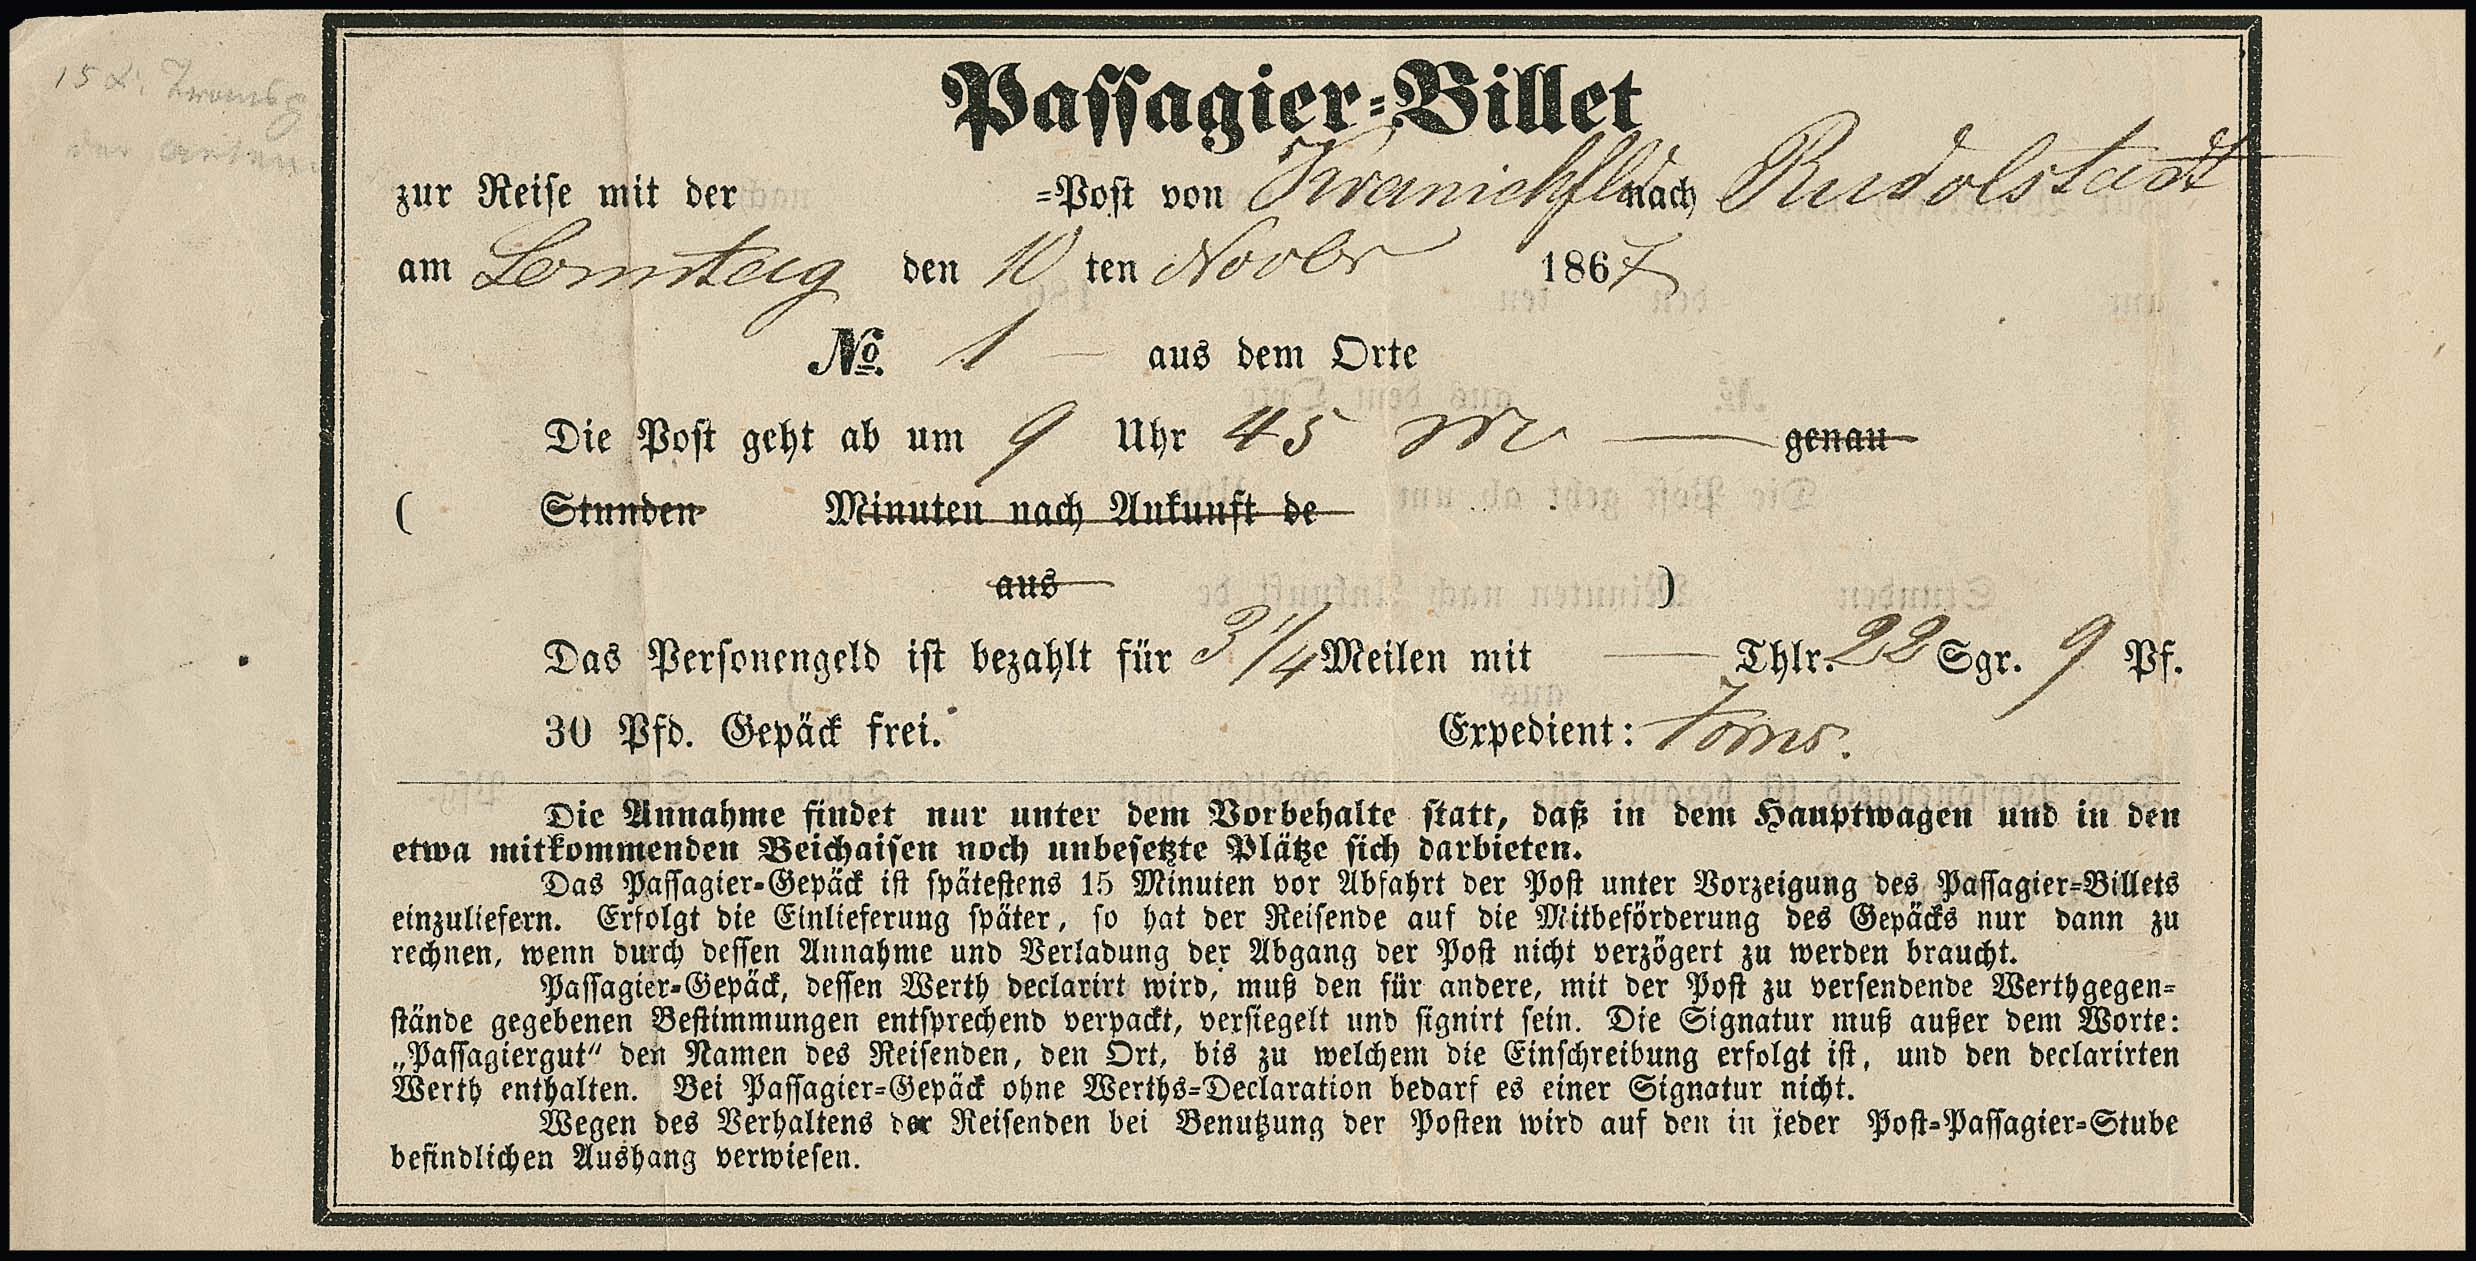 Passagier-Billet
zur Reise mit der =Post von Kranichfld nach Rudolstadt
am Sonntag den 10 ten Novbr 1867
No. 1 — aus dem Orte
Die Post geht ab um 9 Uhr 45 M — genau
( Stunden Minuten nach Ankunft de
aus )
Das Personengeld ist bezahlt für 3 1/4 Meilen mit — Thlr. 22 Sgr. 9 Pf.
30 Pfd. Gepäck frei. Expedient:
Die Annahme findet nur unter dem Vorbehalte statt, daß in dem Hauptwagen und in den
etwa mitkommenden Beichaisen noch unbesetzte Plätze sich darbieten.
Das Passagier-Gepäck ist spätestens 15 Minuten vor Abfahrt der Post unter Vorzeigung des Passagier-Billets
einzuliefern. Erfolgt die Einlieferung später, so hat der Reisende auf die Mitbeförderung des Gepäcks nur dann zu
rechnen, wenn durch dessen Annahme und Verladung der Abgang der Post nicht verzögert zu werden braucht.
Passagier-Gepäck, dessen Werth declarirt wird, muß den für andere, mit der Post zu versendende Werthgegen=
stände gegebenen Bestimmungen entsprechend verpackt, versiegelt und signirt sein. Die Signatur muß außer dem Worte:
„Passagiergut“ den Namen des Reisenden, den Ort, bis zu welchem die Einschreibung erfolgt ist, und den declarirten
Werth enthalten. Bei Passagier-Gepäck ohne Werths-Declaration bedarf es einer Signatur nicht.
Wegen des Verhaltens der Reisenden bei Benutzung der Posten wird auf den in jeder Post-Passagier-Stube
befindlichen Aushang verwiesen.